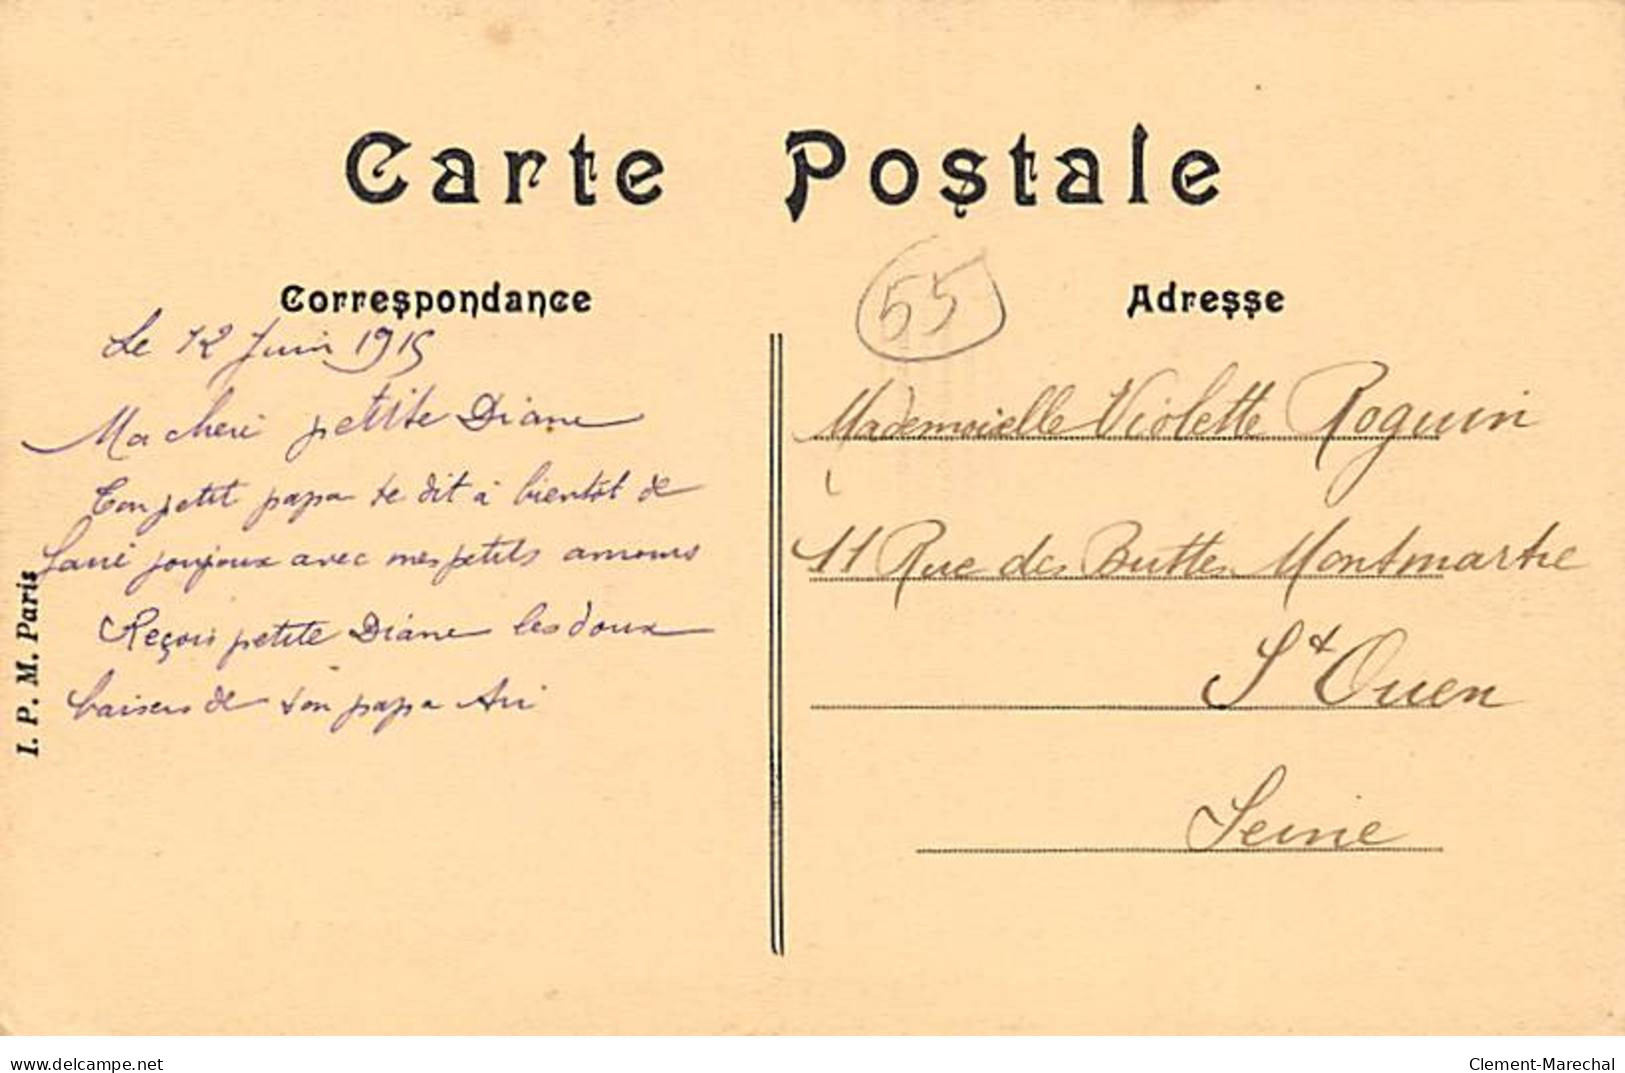 Carte Postale
Correspondance
Le 12 Juin 1915
Ma cheri petite Diane
Ton petit papa te dit à bientôt de
faire joujoux avec mes petits amours
Reçois petite Diane les doux
baisers de ton papa
I. P. M. Paris
55
Adresse
Mademoiselle Violette Roguin
11 Rue des Buttes Montmartre
St Ouen
Seine
delcampe.net
Clement-Marechal